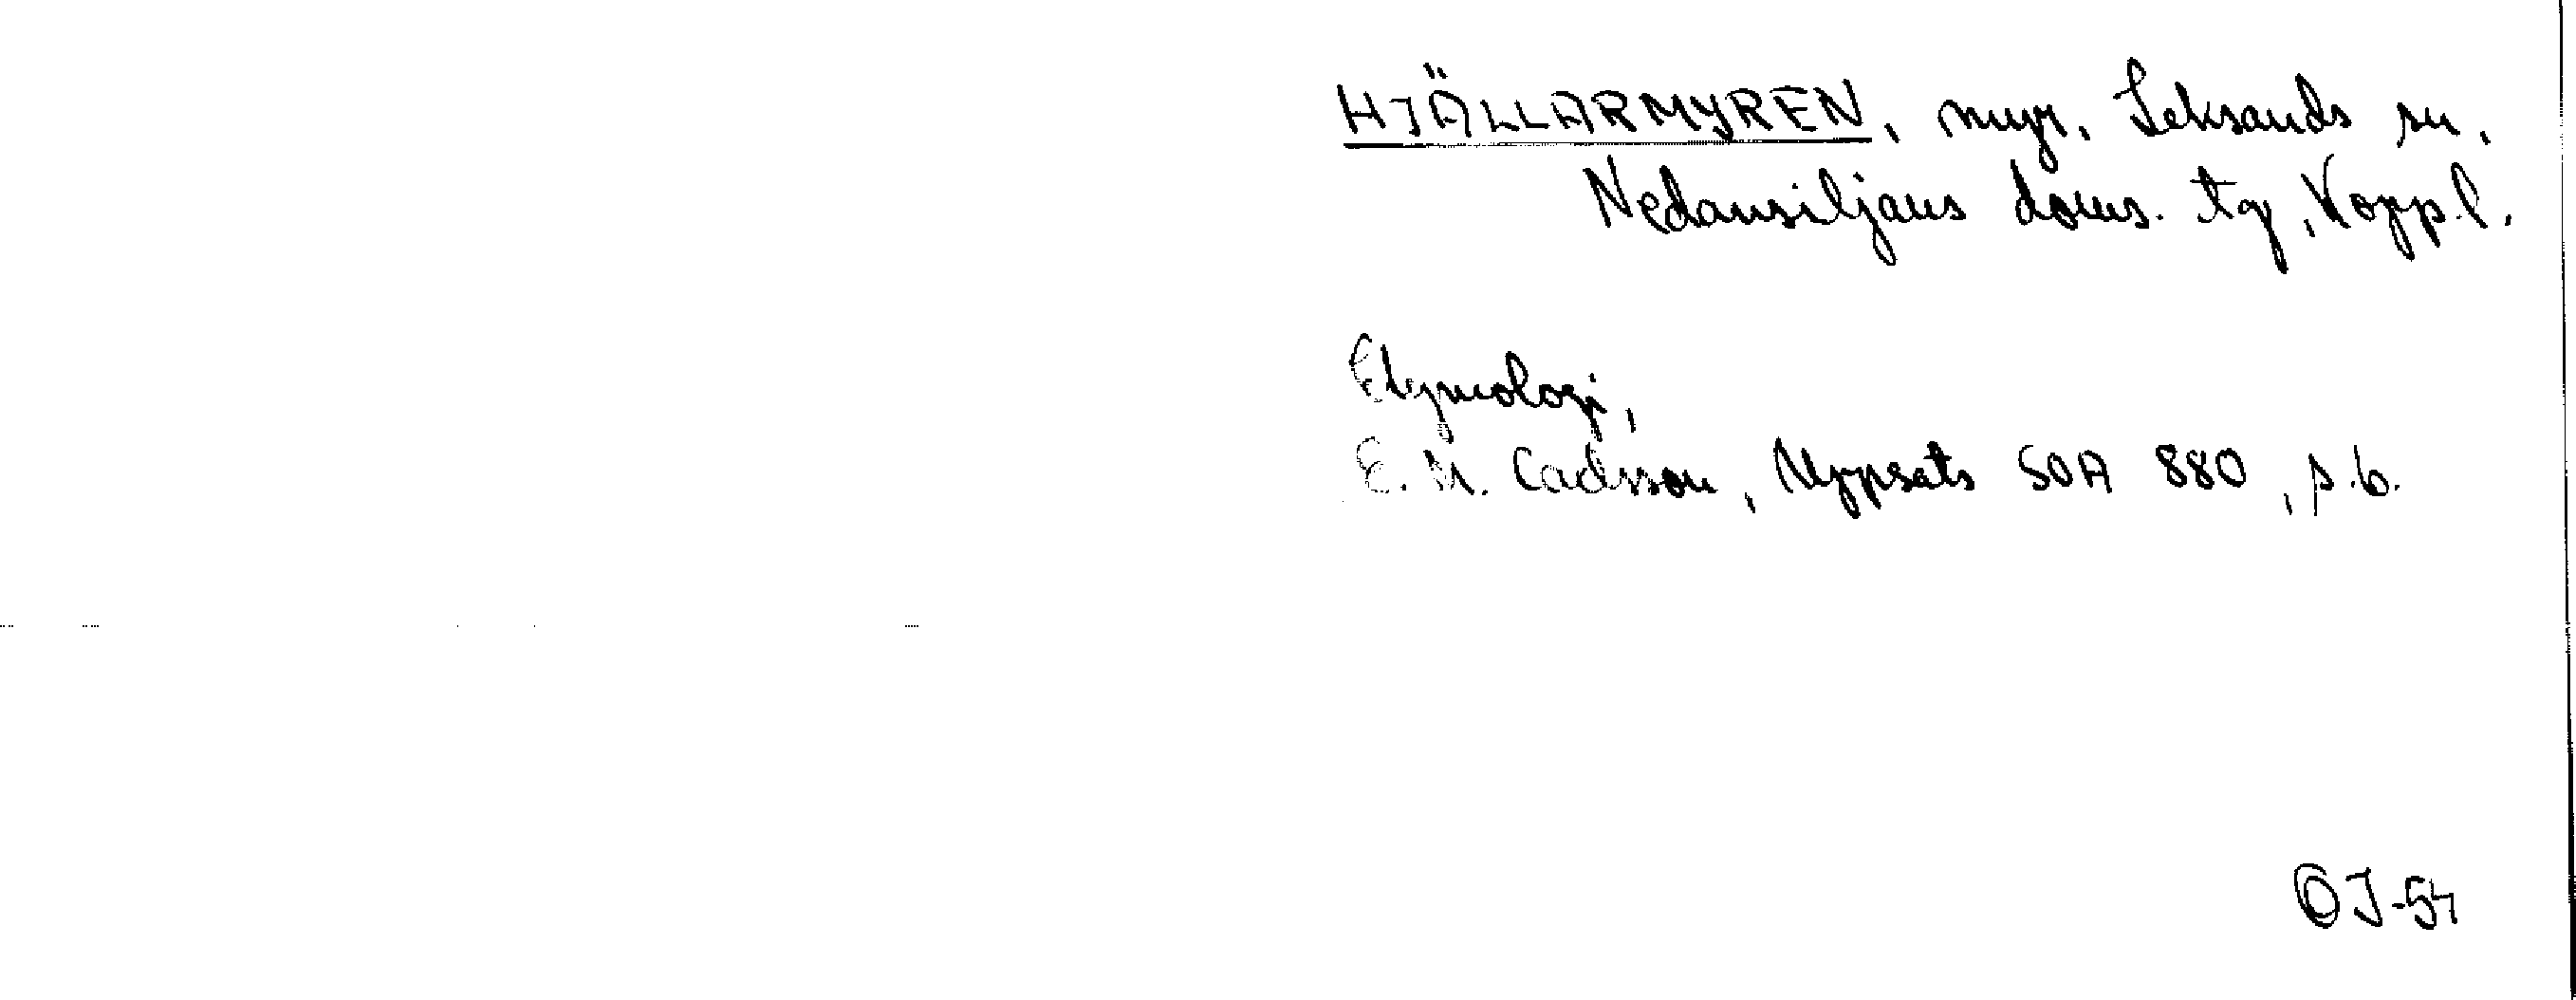 HJÄLLARMYREN, myr, Leksands sn,
Nedansiljans doms. tg, Kopp. l.
Etymologi,
E. M. Carlsson, Uppsats SOA 880, s. 6.
OJ-54